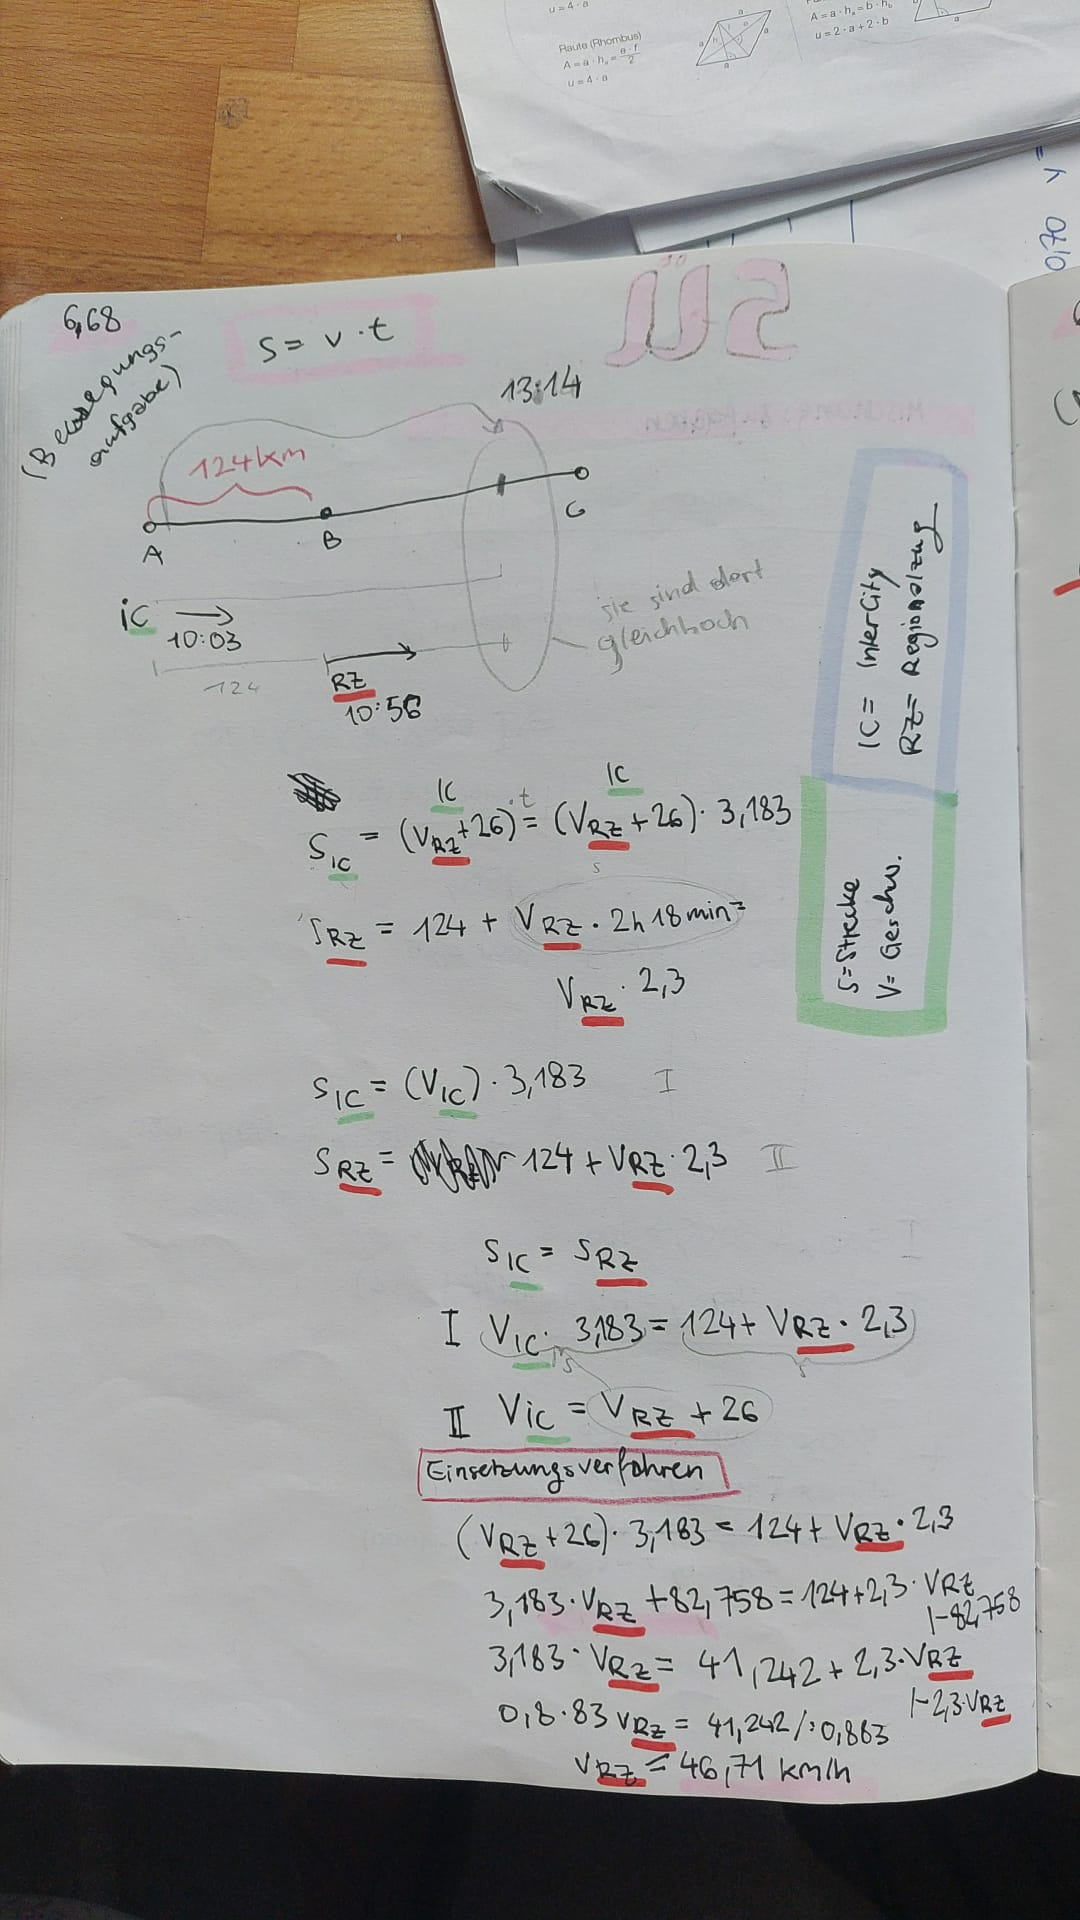 u = 4 · a
Raute (Rhombus)
A = a · hₐ = e · f / 2
u = 4 · a
A = a · hₐ = b · h_b
u = 2 · a + 2 · b
SÜ
6,68
(Bewegungs-
aufgabe)
S = v · t
13:14
124 km
A B C
iC →
10:03
124
RZ
10:56
sie sind dort
gleichhoch
IC = InterCity
RZ = Regionalzug
S = Strecke
V = Geschw.
IC IC
S_IC = (V_RZ + 26) · t = (V_RZ + 26) · 3,183
S_RZ = 124 + V_RZ · 2h 18 min =
V_RZ · 2,3
S_IC = (V_IC) · 3,183 I
S_RZ = 124 + V_RZ · 2,3 II
S_IC = S_RZ
I V_IC · 3,183 = 124 + V_RZ · 2,3
II V_iC = V_RZ + 26
Einsetzungsverfahren
(V_RZ + 26) · 3,183 = 124 + V_RZ · 2,3
3,183 · V_RZ + 82,758 = 124 + 2,3 · V_RZ
|-82,758
3,183 · V_RZ = 41,242 + 2,3 · V_RZ
|-2,3·V_RZ
0,8·83 V_RZ = 41,242 /:0,883
V_RZ = 46,71 km/h